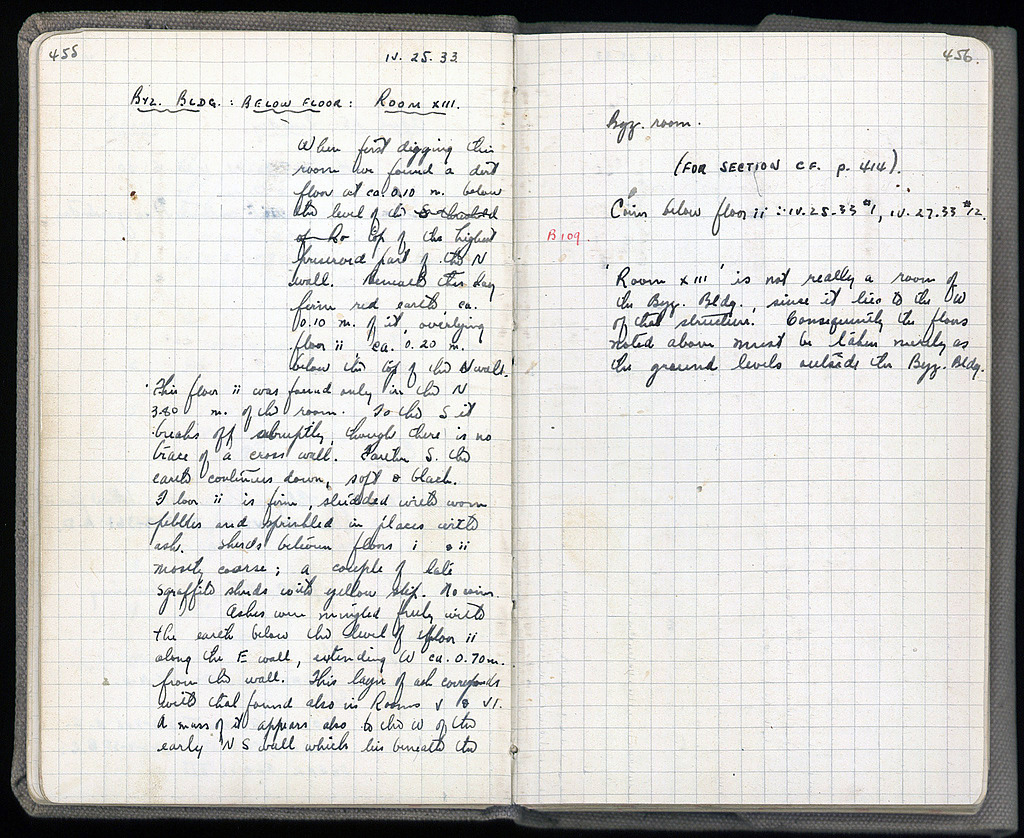 455
IV. 25. 33.
Byz. Bldg. : Below Floor : Room XIII.
When first digging this
room we found a dirt
floor at ca. 0.10 m. below
the level of the S
of top of the highest
preserved part of the N
wall. Beneath this lay
firm red earth, ca.
0.10 m. of it, overlying
floor ii, ca. 0.20 m.
below the top of the N wall.
This floor ii was found only in the N
3.80 m. of the room. To the S it
breaks off abruptly, though there is no
trace of a cross wall. Farther S. the
earth continues down, soft & black.
Floor ii is firm, studded with worn
pebbles and sprinkled in places with
ash. Sherds between floors i & ii
mostly coarse; a couple of late
sgraffito sherds with yellow slip. No coins.
Ashes were mingled freely with
the earth below the level of floor ii
along the E wall, extending W ca. 0.70 m.
from the wall. This layer of ash corresponds
with that found also in Rooms V & VI.
A mass of it appears also to the W of the
early N S wall which lies beneath the
456.
Byz. room.
(For section cf. p. 414).
Coins below floor ii : IV.25.33 #1, IV.27.33 #12.
B109.
'Room XIII' is not really a room of
the Byz. Bldg., since it lies to the W
of that structure. Consequently the floors
noted above must be taken merely as
the ground levels outside the Byz. Bldg.